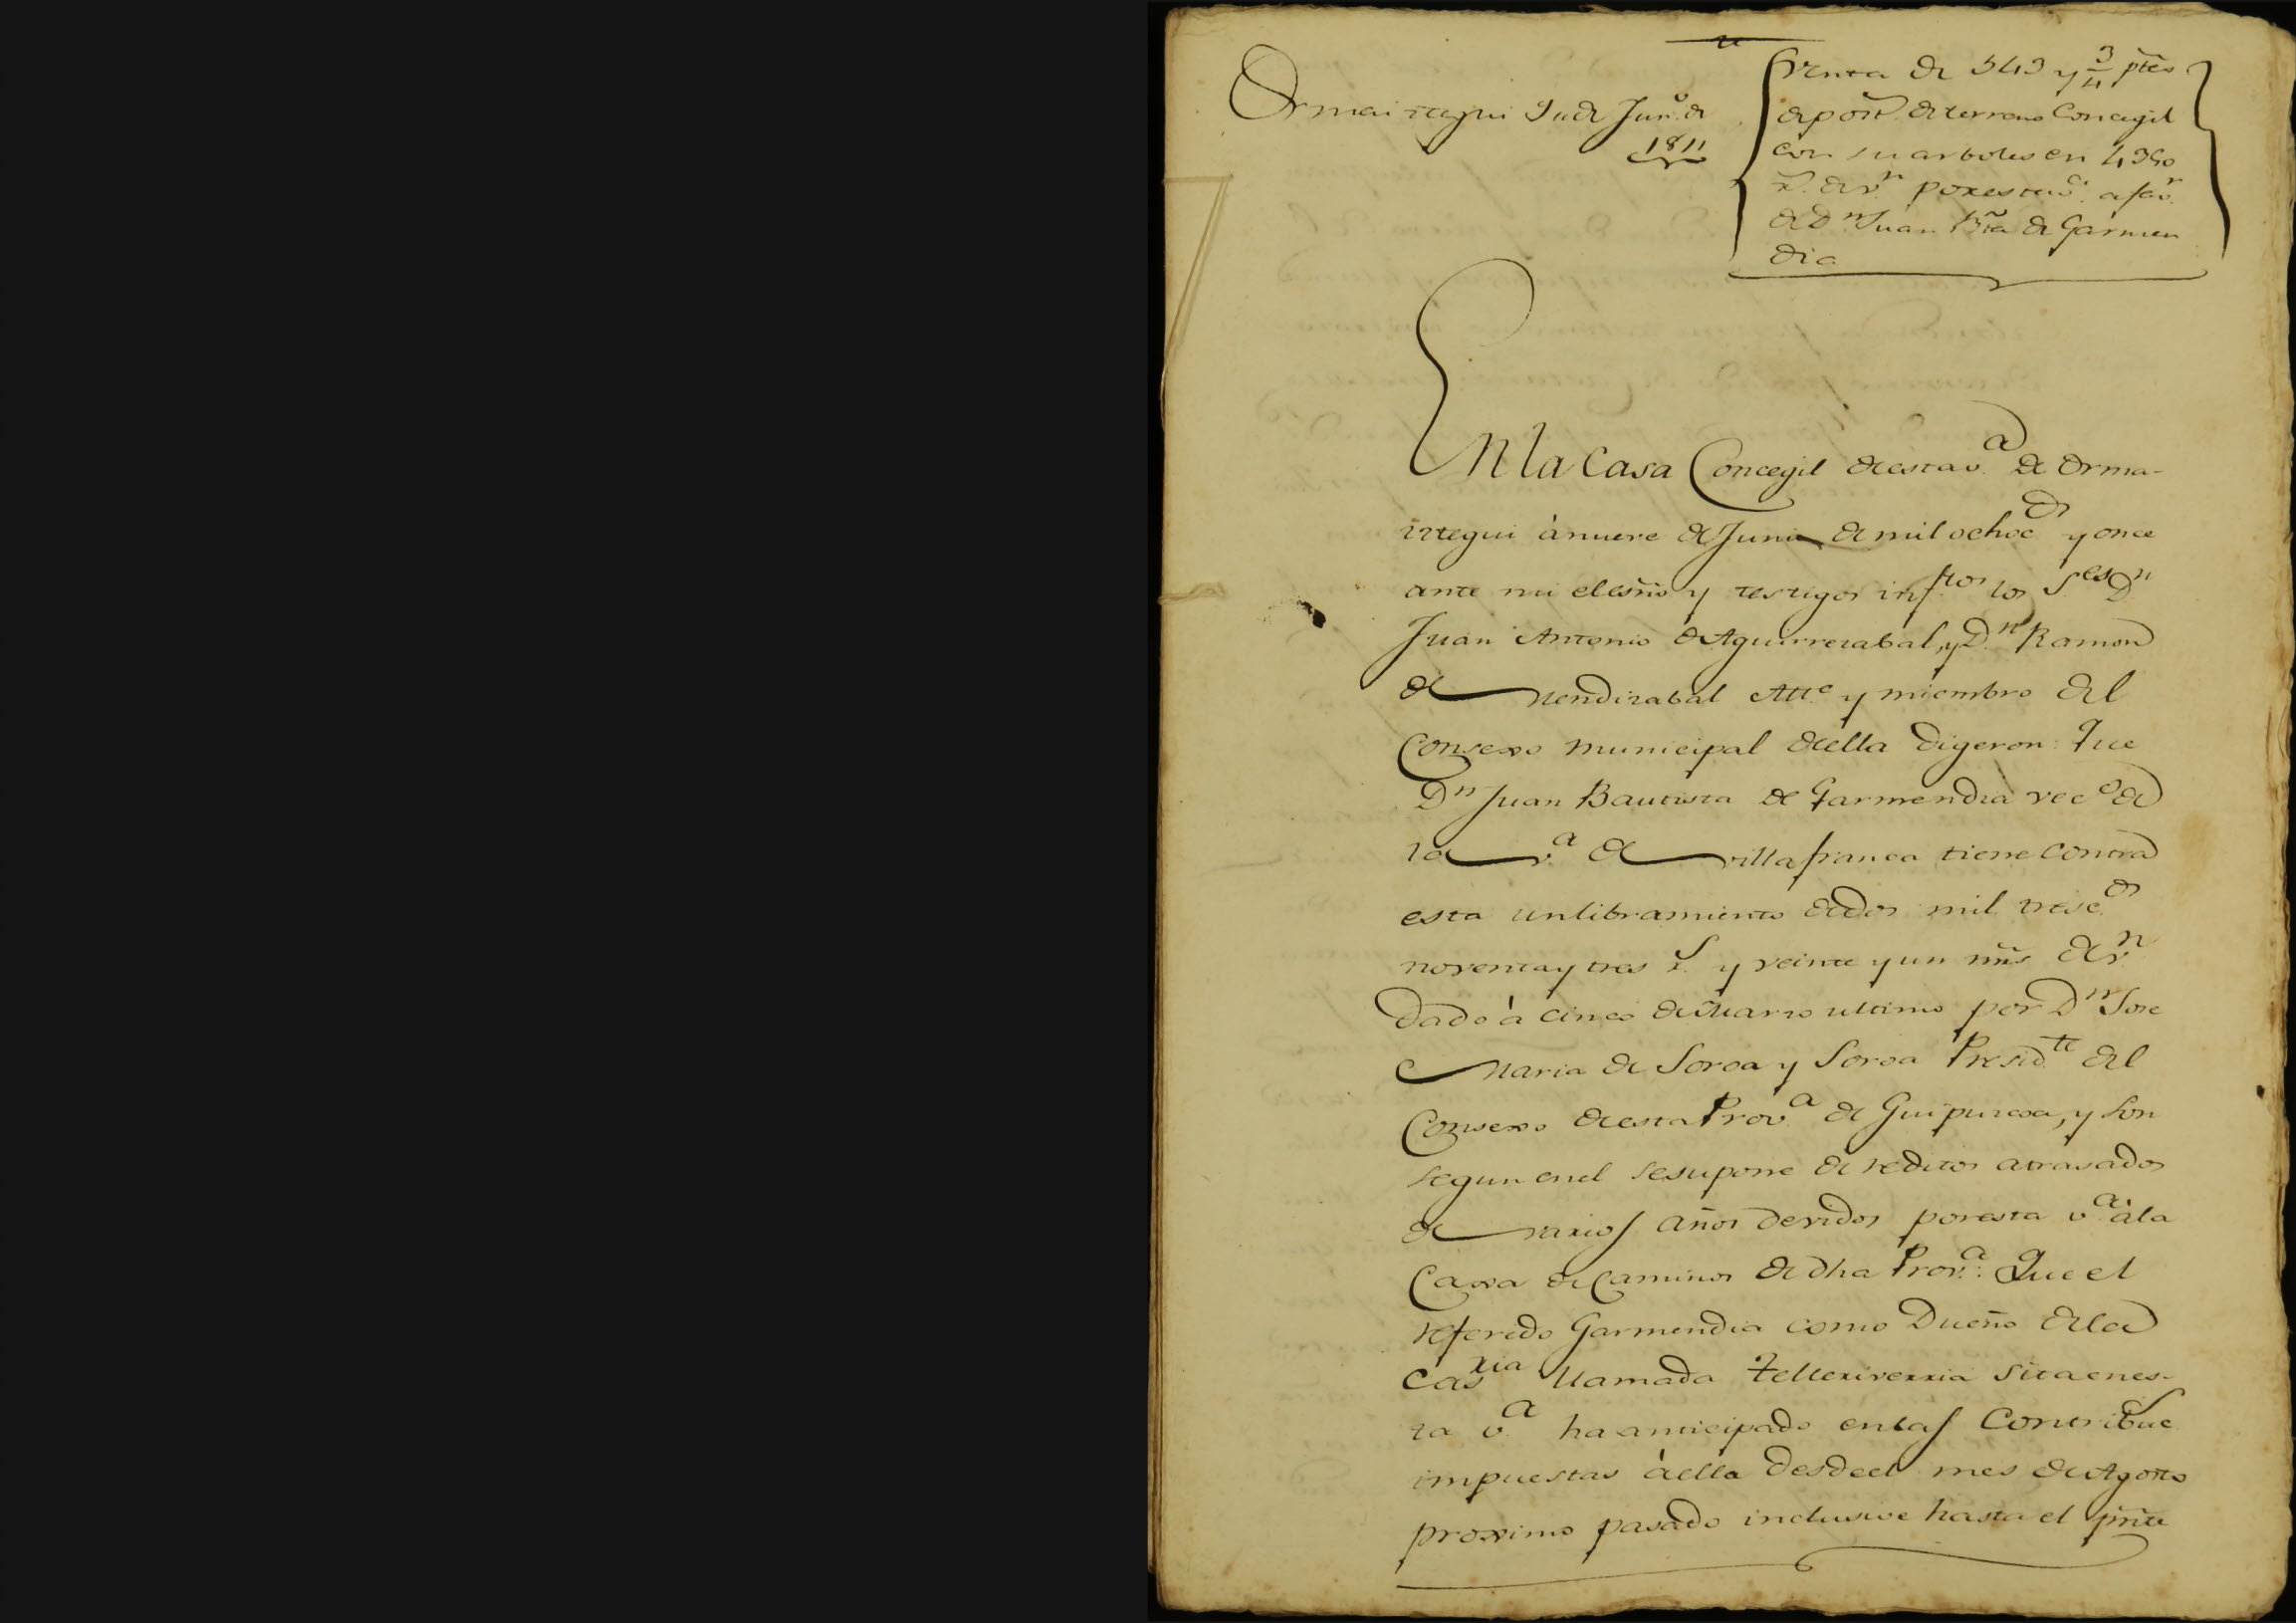 Ormaiztegui 9 de Jun.º de
1811
Venta de 543 y 3/4 ptes
de post.s de terreno Concegil
con su arboles en 4390
r.s de v.n por esta v.a a fav.r
de D.n Juan Bta de Garmen
dia
En la Casa Concegil de esta v.a de Orma-
iztegui à nueve de Junio de mil ochoc.os y once
ante mi el esño y testigos inf.tos los S.res D.n
Juan Antonio de Aguirrezabal, y D.n Ramon
de Mendizabal Alc.e y miembro del
Consexo Municipal de ella digeron: Que
D.n Juan Bautista de Garmendia vec.o de
la v.a de Villafranca tiene contra
esta un libramiento de dos mil tresc.os
noventa y tres r.s y veinte y un mrs de v.n
dado à cinco de Marzo ultimo por D.n Jose
Maria de Soroa y Soroa Presid.te del
Consexo de esta Prov.a de Guipuzcoa, y son
segun en el se supone de reditos atrasados
de varios años devidos por esta v.a à la
Caxa de Caminos de dha Prov.a: Que el
referido Garmendia como Dueño de la
Cas.ria llamada Telleriverria sita en es-
ta v.a ha anticipado en las Contribuc.s
impuestas à ella desde el mes de Agosto
proximo pasado inclusive hasta el pnte